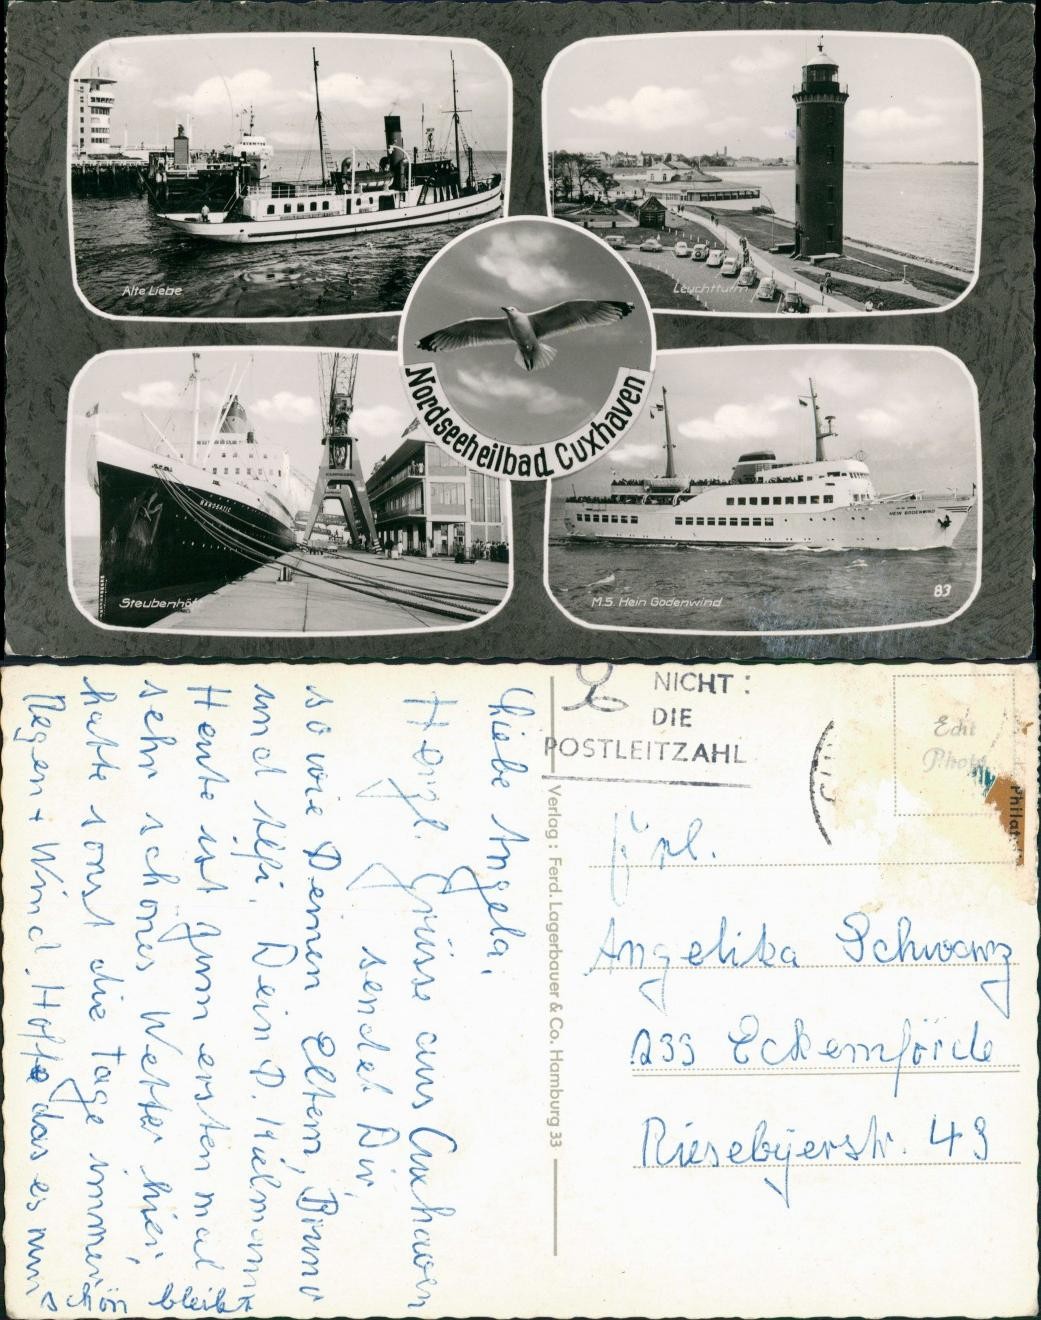 Alte Liebe
Leuchtturm
Nordseeheilbad Cuxhaven
HANSEATIC
Steubenhöft
HEIN GODENWIND
M.S. Hein Godenwind
83
Liebe Angela,
Herzl. Grüsse aus Cuxhaven
sendet Dir,
sowie Deinen Eltern, Bruno
und Dein
Heute ist zum ersten mal
sehr schönes Wetter hier,
hatte sonst die Tage immer
Regen + Wind. Hoffe das es nun
schön bleibt
NICHT:
DIE
POSTLEITZAHL
Verlag: Ferd. Lagerbauer & Co. Hamburg 33
Echt
Photo
Philat
Frl.
Angelika Schwarz
233 Eckernförde
Riesebyerstr. 49